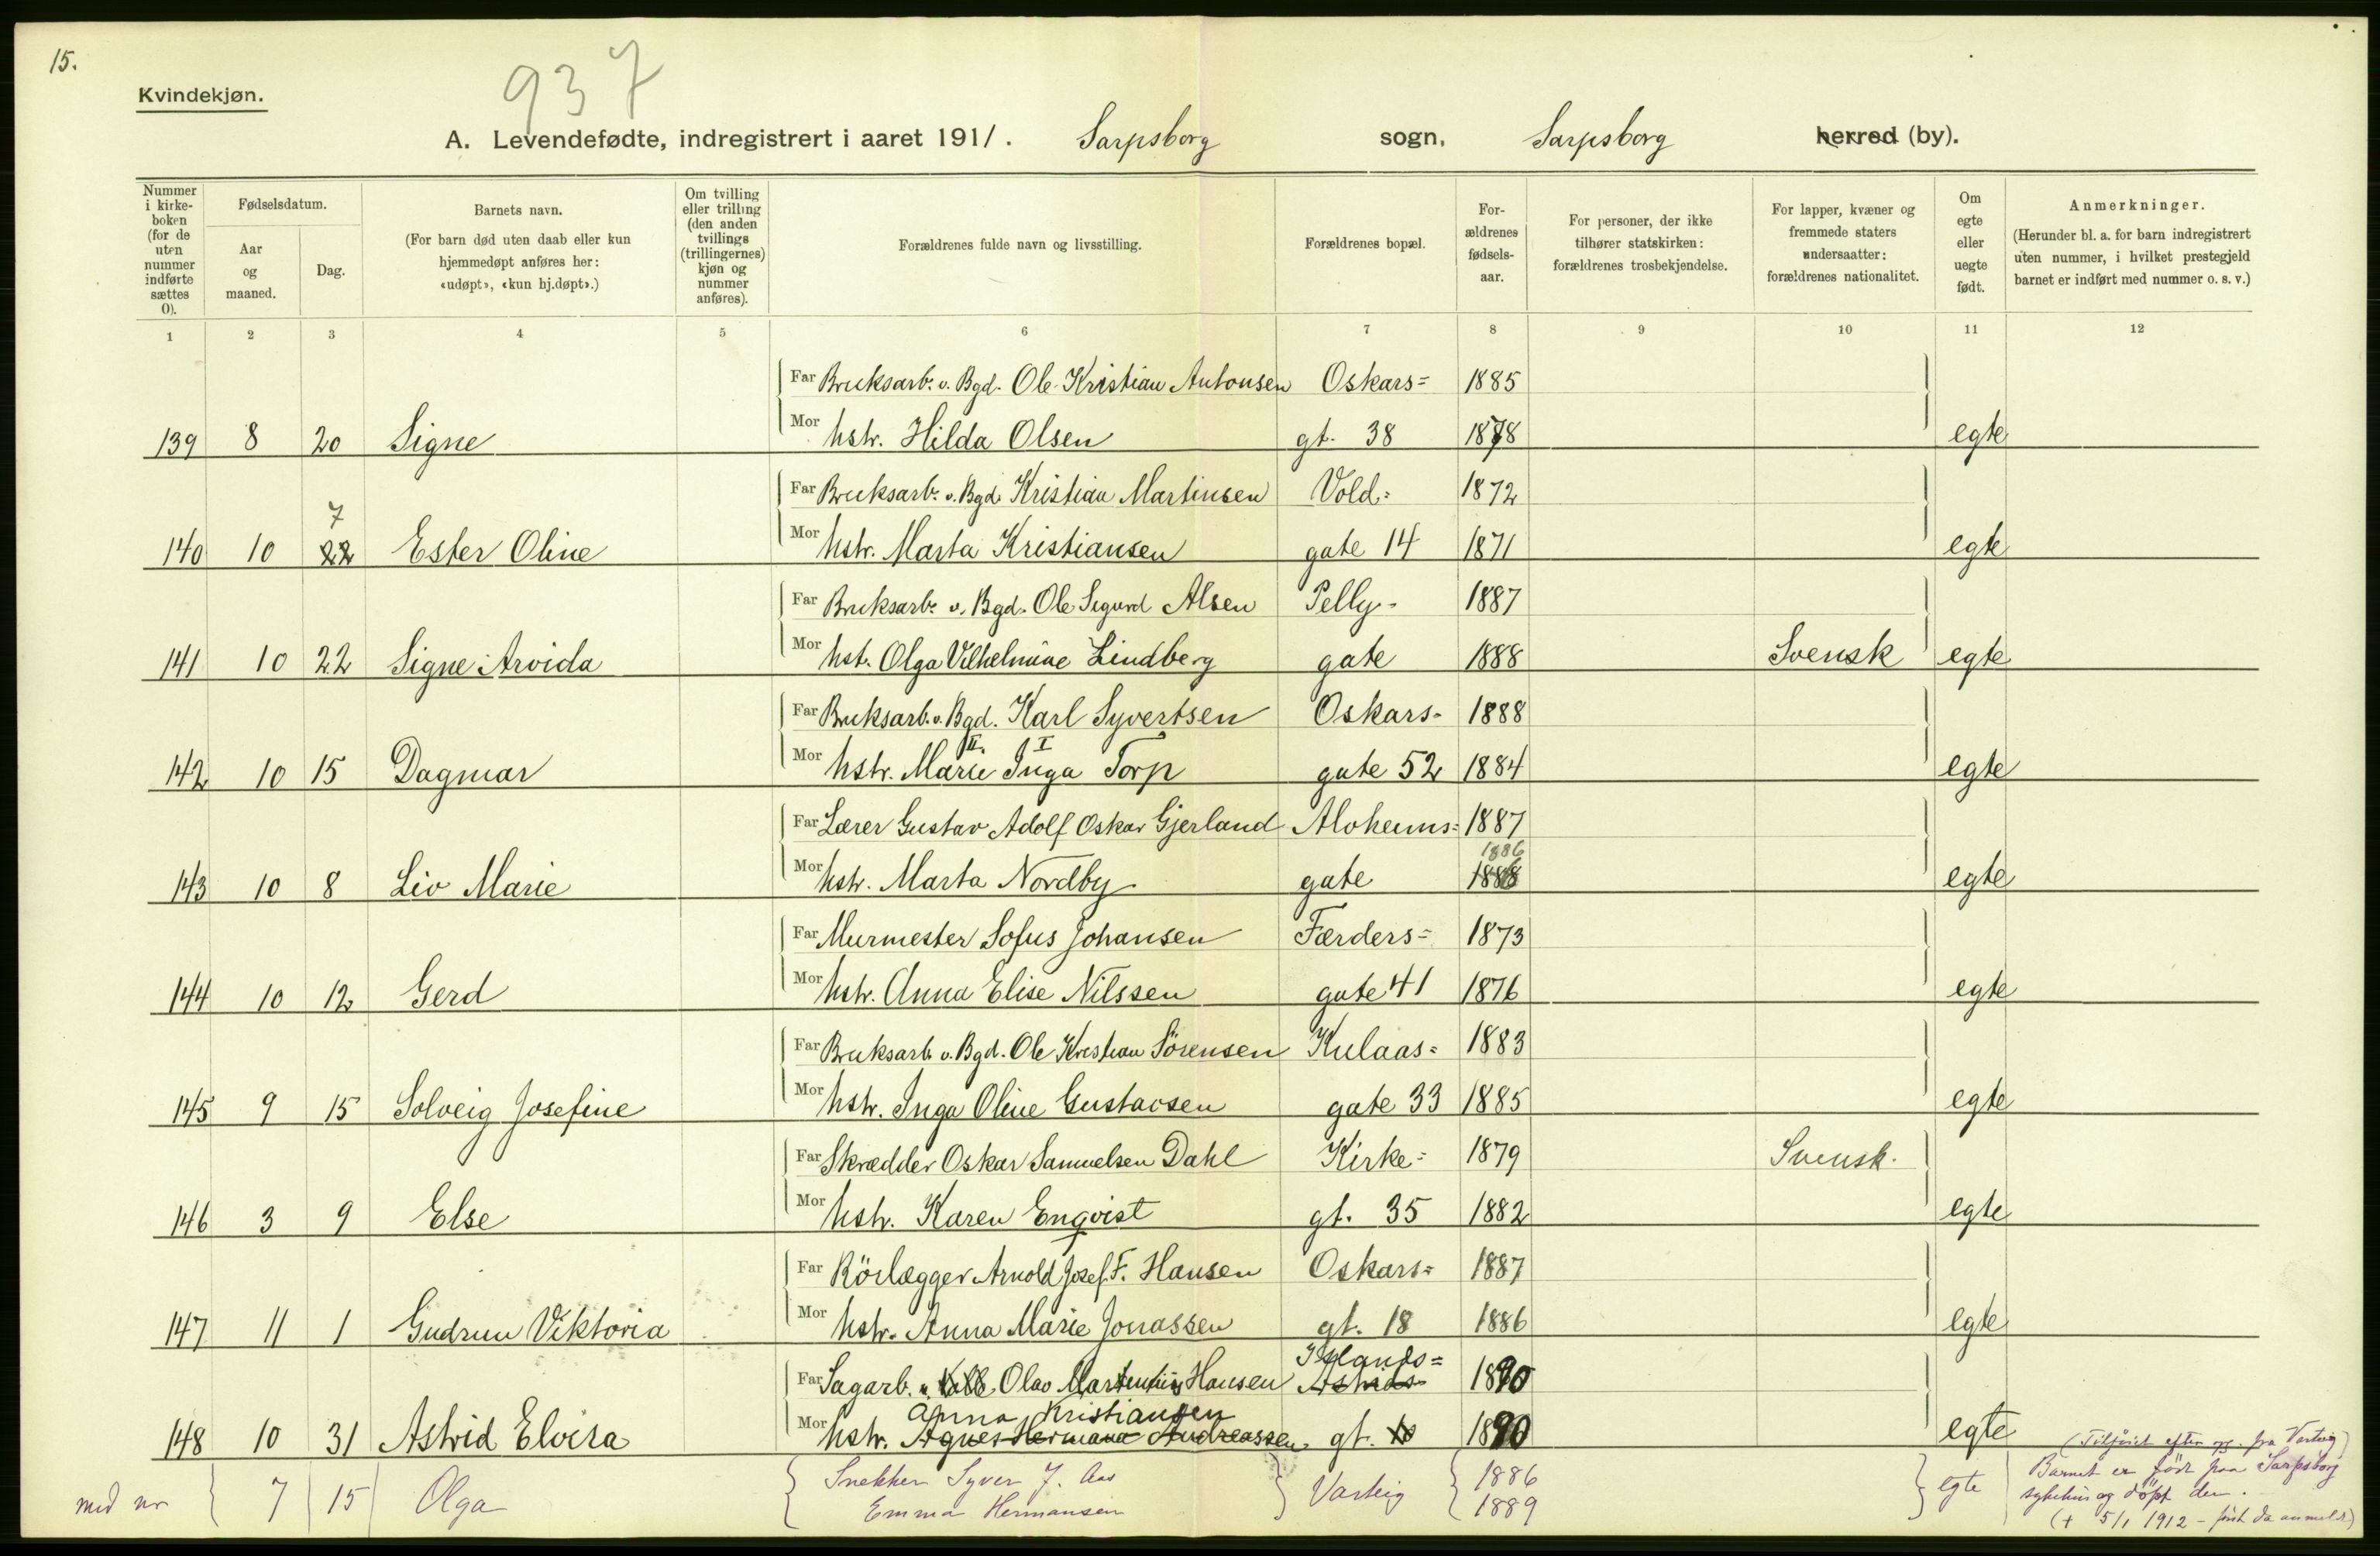 15.
Kvindekjøn.
937
A. Levendefødte, indregistrert i aaret 1911. Sarpsborg sogn, Sarpsborg herred (by).
Nummer i kirkeboken (for de uten nummer indførte sættes 0).
Fødselsdatum.
Aar og maaned.
Dag.
Barnets navn.
(For barn død uten daab eller kun hjemmedøpt anføres her: «udøpt», «kun hj.døpt».)
Om tvilling eller trilling (den anden tvillings (trillingernes) kjøn og nummer anføres).
Forældrenes fulde navn og livsstilling.
Forældrenes bopæl.
Forældrenes fødselsaar.
For personer, der ikke tilhører statskirken: forældrenes trosbekjendelse.
For lapper, kvæner og fremmede staters undersaatter: forældrenes nationalitet.
Om egte eller uegte født.
Anmerkninger.
(Herunder bl. a. for barn indregistrert uten nummer, i hvilket prestegjeld barnet er indført med nummer o. s. v.)
1 2 3 4 5 6 7 8 9 10 11 12
Far Bruksarb. v. Bgd. Ole Kristian Antonsen Oskars= 1885
139 8 20 Signe Mor hstr. Hilda Olsen gt. 38 1878 egte
Far Bruksarb. v. Bgd. Kristian Martinsen Vold= 1872
7
140 10 22 Ester Oline Mor hstr. Marta Kristiansen gate 14 1871 egte
Far Bruksarb. v. Bgd. Ole Sigurd Alsen Pelly- 1887
141 10 22 Signe Arvida Mor hst. Olga Vilhelmine Lindberg gate 1888 Svensk egte
Far Bruksarb. v. Bgd. Karl Syvertsen Oskars- 1888
II. I
142 10 15 Dagmar Mor hstr. Marie Inga Torp gate 52 1884 egte
Far Lærer Gustav Adolf Oskar Gjerland Alvheims= 1887
1886
143 10 8 Liv Marie Mor hstr. Marta Nordby gate 1888 egte
Far Murmester Sofus Johansen Færders= 1873
144 10 12 Gerd Mor hstr. Anna Elise Nilssen gate 41 1876 egte
Far Bruksarb. v. Bgd. Ole Kristian Sörensen Kulaas= 1883
145 9 15 Solveig Josefine Mor hstr. Inga Oline Gustavsen gate 33 1885 egte
Far Skrædder Oskar Samuelsen Dahl Kirke= 1879 Svensk.
146 3 9 Else Mor hstr. Karen Enqvist gt. 35 1882 egte
Far Rörlægger Arnold Josef F. Hansen Oskars= 1887
147 11 1 Gudrun Viktoria Mor hstr. Anna Marie Jonassen gt. 18 1886 egte
Islands=
Far Sagarb. Olav Martinius Hansen Astrids= 1890
Anna Kristiansen
148 10 31 Astrid Elvira Mor hstr. Agnes Hermana Andreassen gt. 10 1890 egte
(Tilföiet efter opg. fra Varteig)
Snekker Syver J. Aas 1886 Barnet er född paa Sarpsborg
med nr 7 15 Olga Varteig egte sykehus og döpt der.
Emma Hermansen 1889 (+ 5/1 1912 - först da anmeldt)